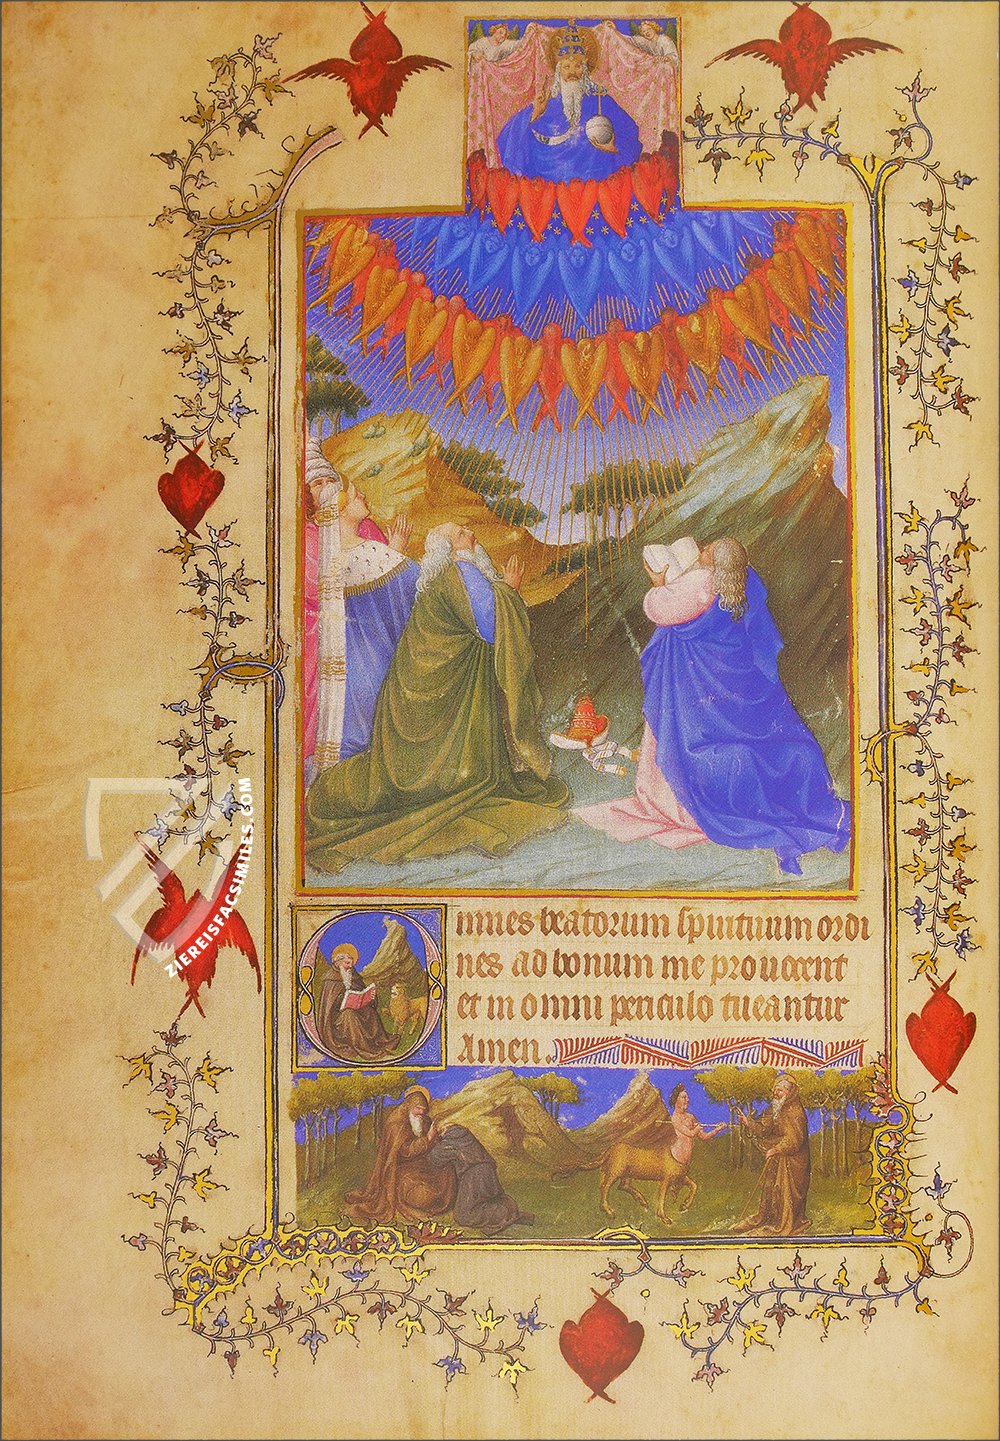 Omnes beatorum spirituum ordi
nes ad bonum me prouocent
et in omni periculo tueantur
Amen.
ZIEREISFACSIMILES.COM